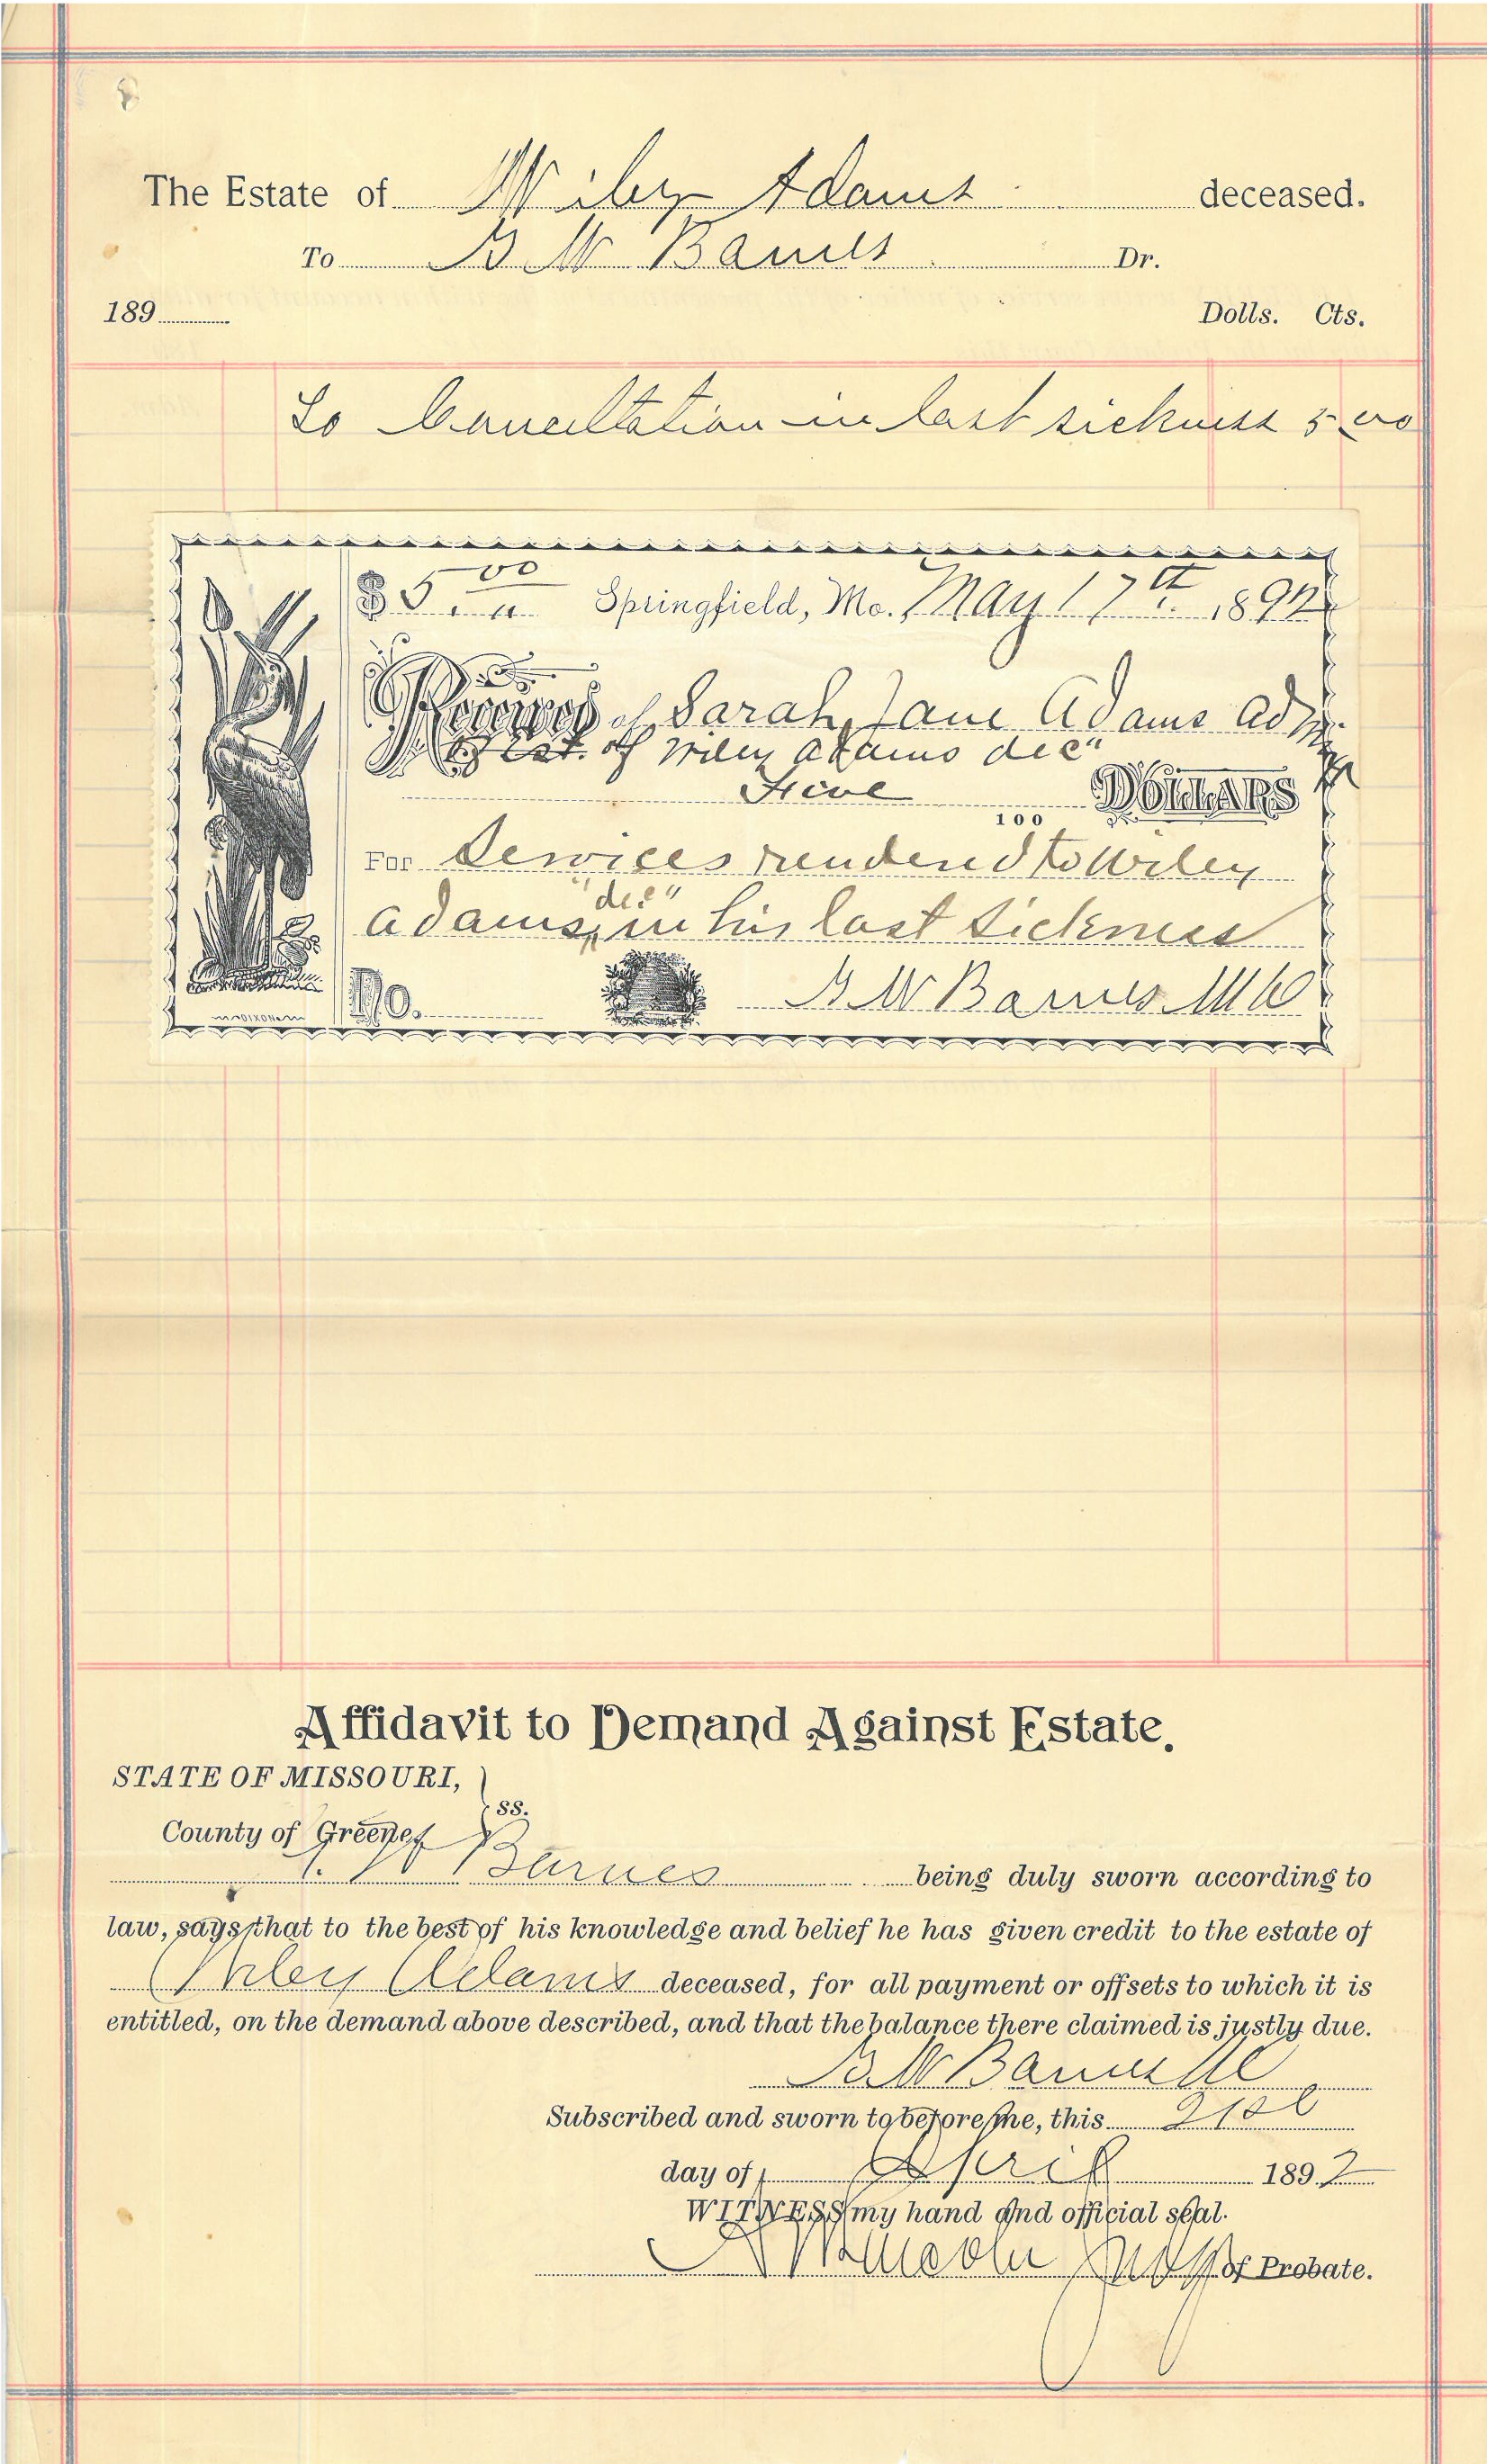 The Estate of Wiley Adams deceased.
To B W Barnes Dr.
189 Dolls. Cts.
To Consultation in last sickness 5 00
$ 5 00 Springfield, Mo. May 17th 1892
Received of Sarah Jane Adams Admx
Est. of Wiley Adams dec"
Five 100 DOLLARS
For Services rendered to Wiley
"dec"
Adams, in his last sickness
No. B W Barnes MD
DIXON
Affidavit to Demand Against Estate.
STATE OF MISSOURI,
ss.
County of Greene
W Barnes being duly sworn according to
law, says that to the best of his knowledge and belief he has given credit to the estate of
Wiley Adams deceased, for all payment or offsets to which it is
entitled, on the demand above described, and that the balance there claimed is justly due.
B W Barnes
Subscribed and sworn to before me, this 21st
day of April 1892
WITNESS my hand and official seal.
Judge of Probate.